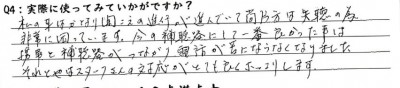 Q4：実際に使ってみていかがですか？
私の耳はかなり聞こえの進行が進んでいて高い方は失聴の為
非常に困っています。今の補聴器にして一番良かった事は
携帯と補聴器がつながり電話が苦にならなくなりました
それと他はスタークさんの対応がとても良くホッとします